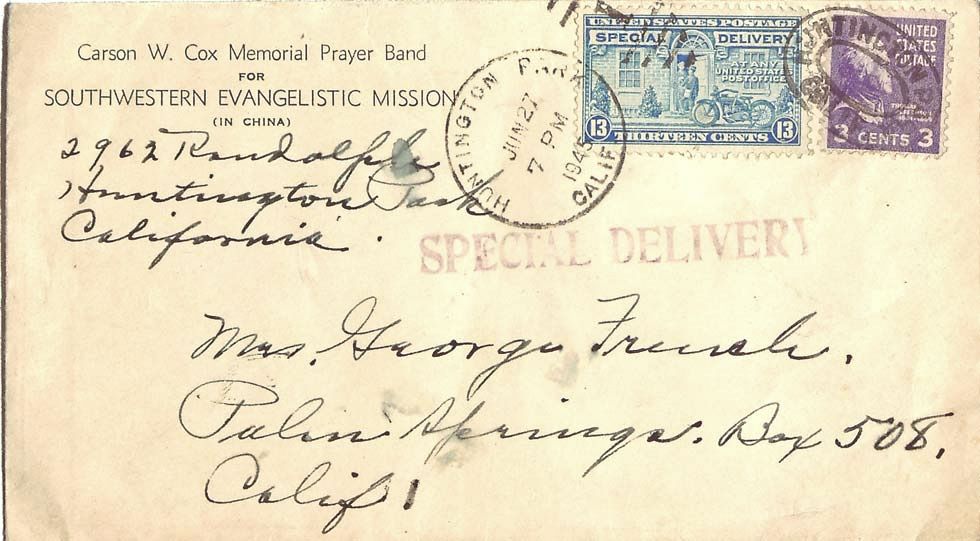 Carson W. Cox Memorial Prayer Band
FOR
SOUTHWESTERN EVANGELISTIC MISSION
(IN CHINA)
2962 Randolph
Huntington Park
California.
HUNTINGTON PARK
JUN 27
7 PM
1945
CALIF
UNITED STATES POSTAGE
SPECIAL DELIVERY
AT ANY
UNITED STATES
POST OFFICE
13 THIRTEEN CENTS 13
HUNTINGTON P
UNITED
STATES
POSTAGE
3 CENTS 3
SPECIAL DELIVERY
Mrs. George French.
Palm Springs. Box 508.
Calif